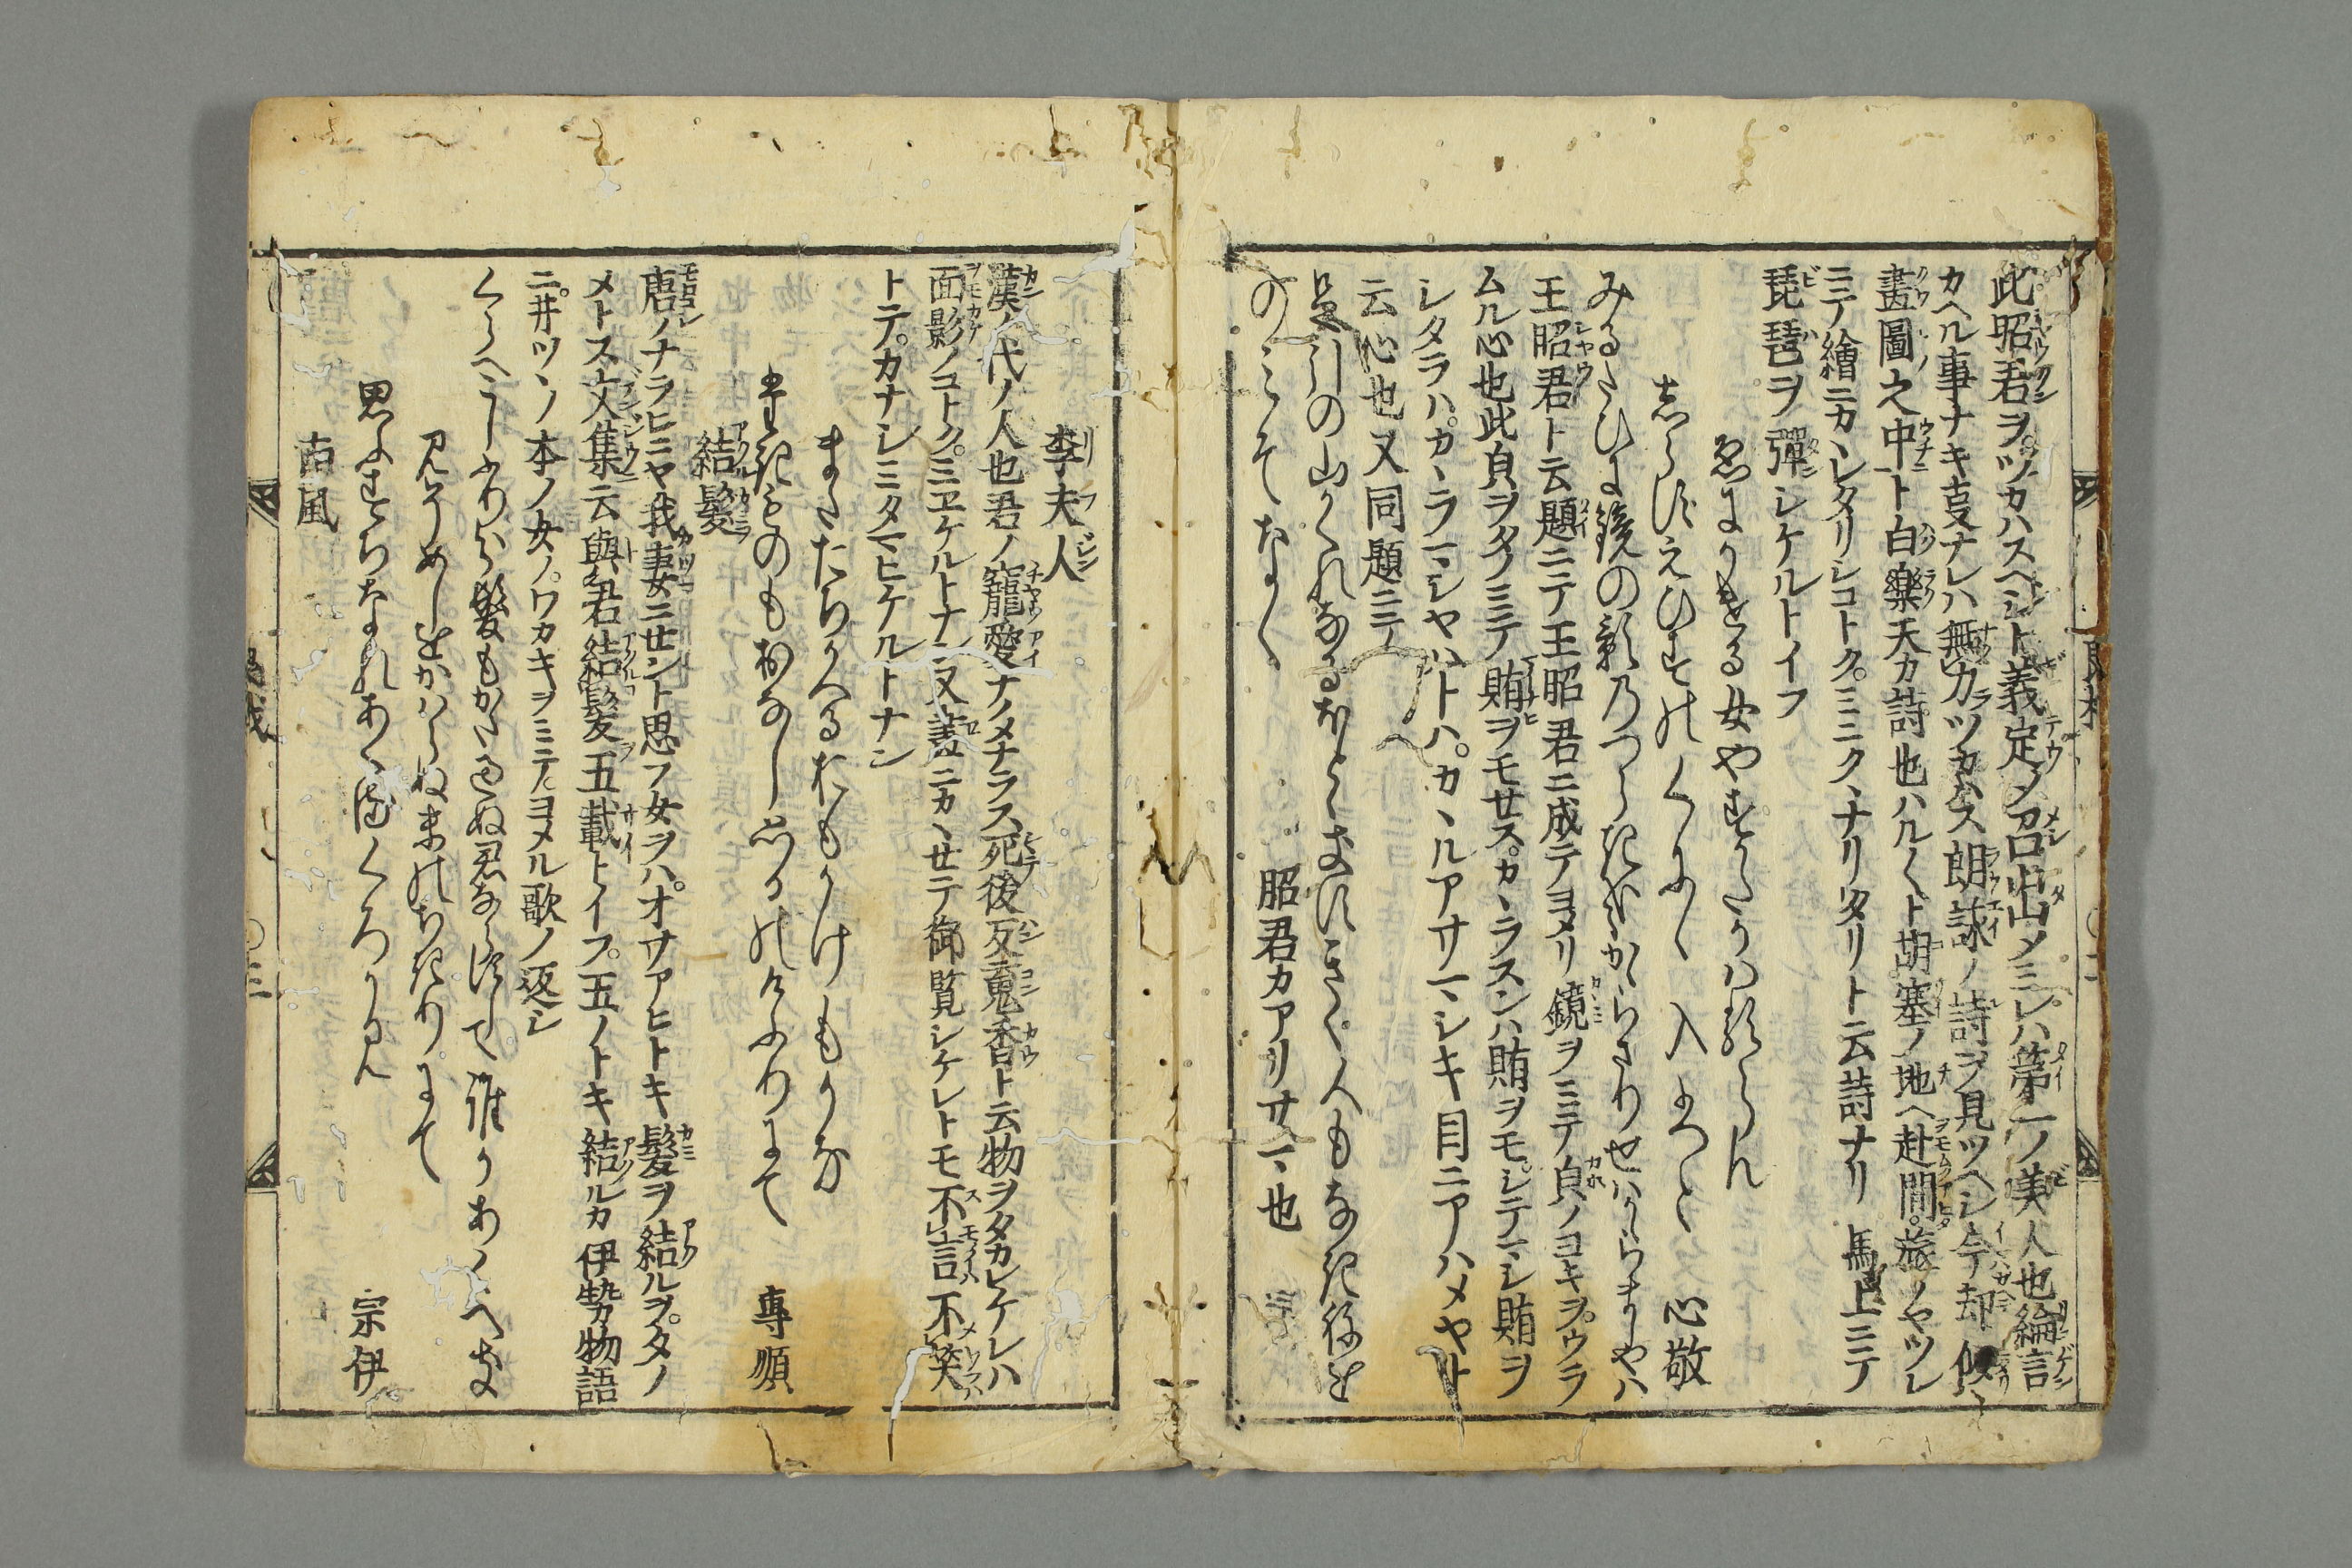 此昭君ヲツカハスヘシト義定メ召出メミレハ第一ノ美人也綸言
カヘル事ナキ叓ナレハ無力ツカハス朗詠ノ詩ヲ見ツヘシ今却似
畫圖之中ト白樂天カ詩也ハル〱ト胡塞ノ地ヘ赴間旅ノヤツレ
ニテ繪ニカヽレタリシコトクミニクヽナリタリト云詩ナリ馬上ニテ
琵琶ヲ彈シケルトイフ
女やすかたの
えひすのくに入 心敬
みるたひに鏡の影のつらきかな
王昭君ト云題ニテ王昭君ニ成テヨメリ鏡ヲミテ皃ノヨキヲウラ
ムル心也此皃ヲタノミテ賄ヲモセスカヽラスンハ賄ヲモシテマシ賄ヲ
シタラハカヽラマシヤハトハカヽルアサマシキ目ニアハメヤト
云心也又同題ニテ
足引の山かくれなるほとゝきすきく人もなき音を
のみそなく 昭君カアリサマ也
李夫人
漢ノ代ノ人也君ノ寵愛ナノメナラス死後反䰟香ト云物ヲタカレケレハ
面影ノコトクミヱケルトナン又畫ニカヽセテ御覧シケレトモ不言不笑
トテカナシミタマヒケルトナン
またたちかへるおもかけもかな
たきものもおなしけふりにて 專順
結髮
唐ノナラヒニヤ我妻ニセント思フ女ヲハオサアヒトキ髮ヲ結ルヲタノ
メトス文集云與君結髮五載トイフ五ノトキ結ルカ伊勢物語
ニ井ツヽノ本ノ女ノワカキヲミテヨメル歌ノ返シ
くらへこしふりわけ髮もかたすきぬ君ならすして誰かあくへき
見そめしとかはらぬ末のちきりにて
思ふすちなれあくるくろかみ 宗伊
古風